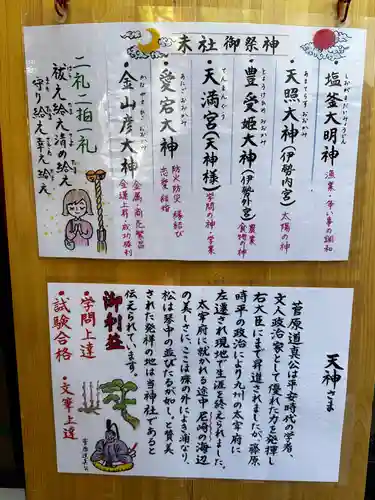 末社御祭神
塩釜大明神
しおがまだいみょうじん
漁業・争い事の調和
天照大神(伊勢内宮)
てんしょうおおみかみ
太陽の神
豊受姫大神(伊勢外宮)
とようけのおおかみ
農業
食物の神
天満宮(天神様)
てんまんぐう
学問の神・学業
・愛宕大神
あたごおおかみ
防火防災 縁結び
恋愛 結婚
・金山彦大神
かなやまひこおおかみ
金属・商売繁昌
金運上昇・成功勝利
二礼二拍一礼
祓え給え清め給え
守り給え幸え給え
天神さま
菅原道真公は平安時代の学者、
文人政治家として優れた力を発揮し
右大臣にまで昇進されましたが、藤原
時平の政治により九州の太宰府に
左遷され現地で生涯を終えられました。
太宰府に赴かれる途中尼崎の海辺
の美しさに、ここは殊の外によき浦なり、
松は琴中の並びてるが如し、と賛美
された発祥の地は当神社であると
伝えられています。
御利益
・学問上達
・試験合格
・文筆上達
菅原道真公